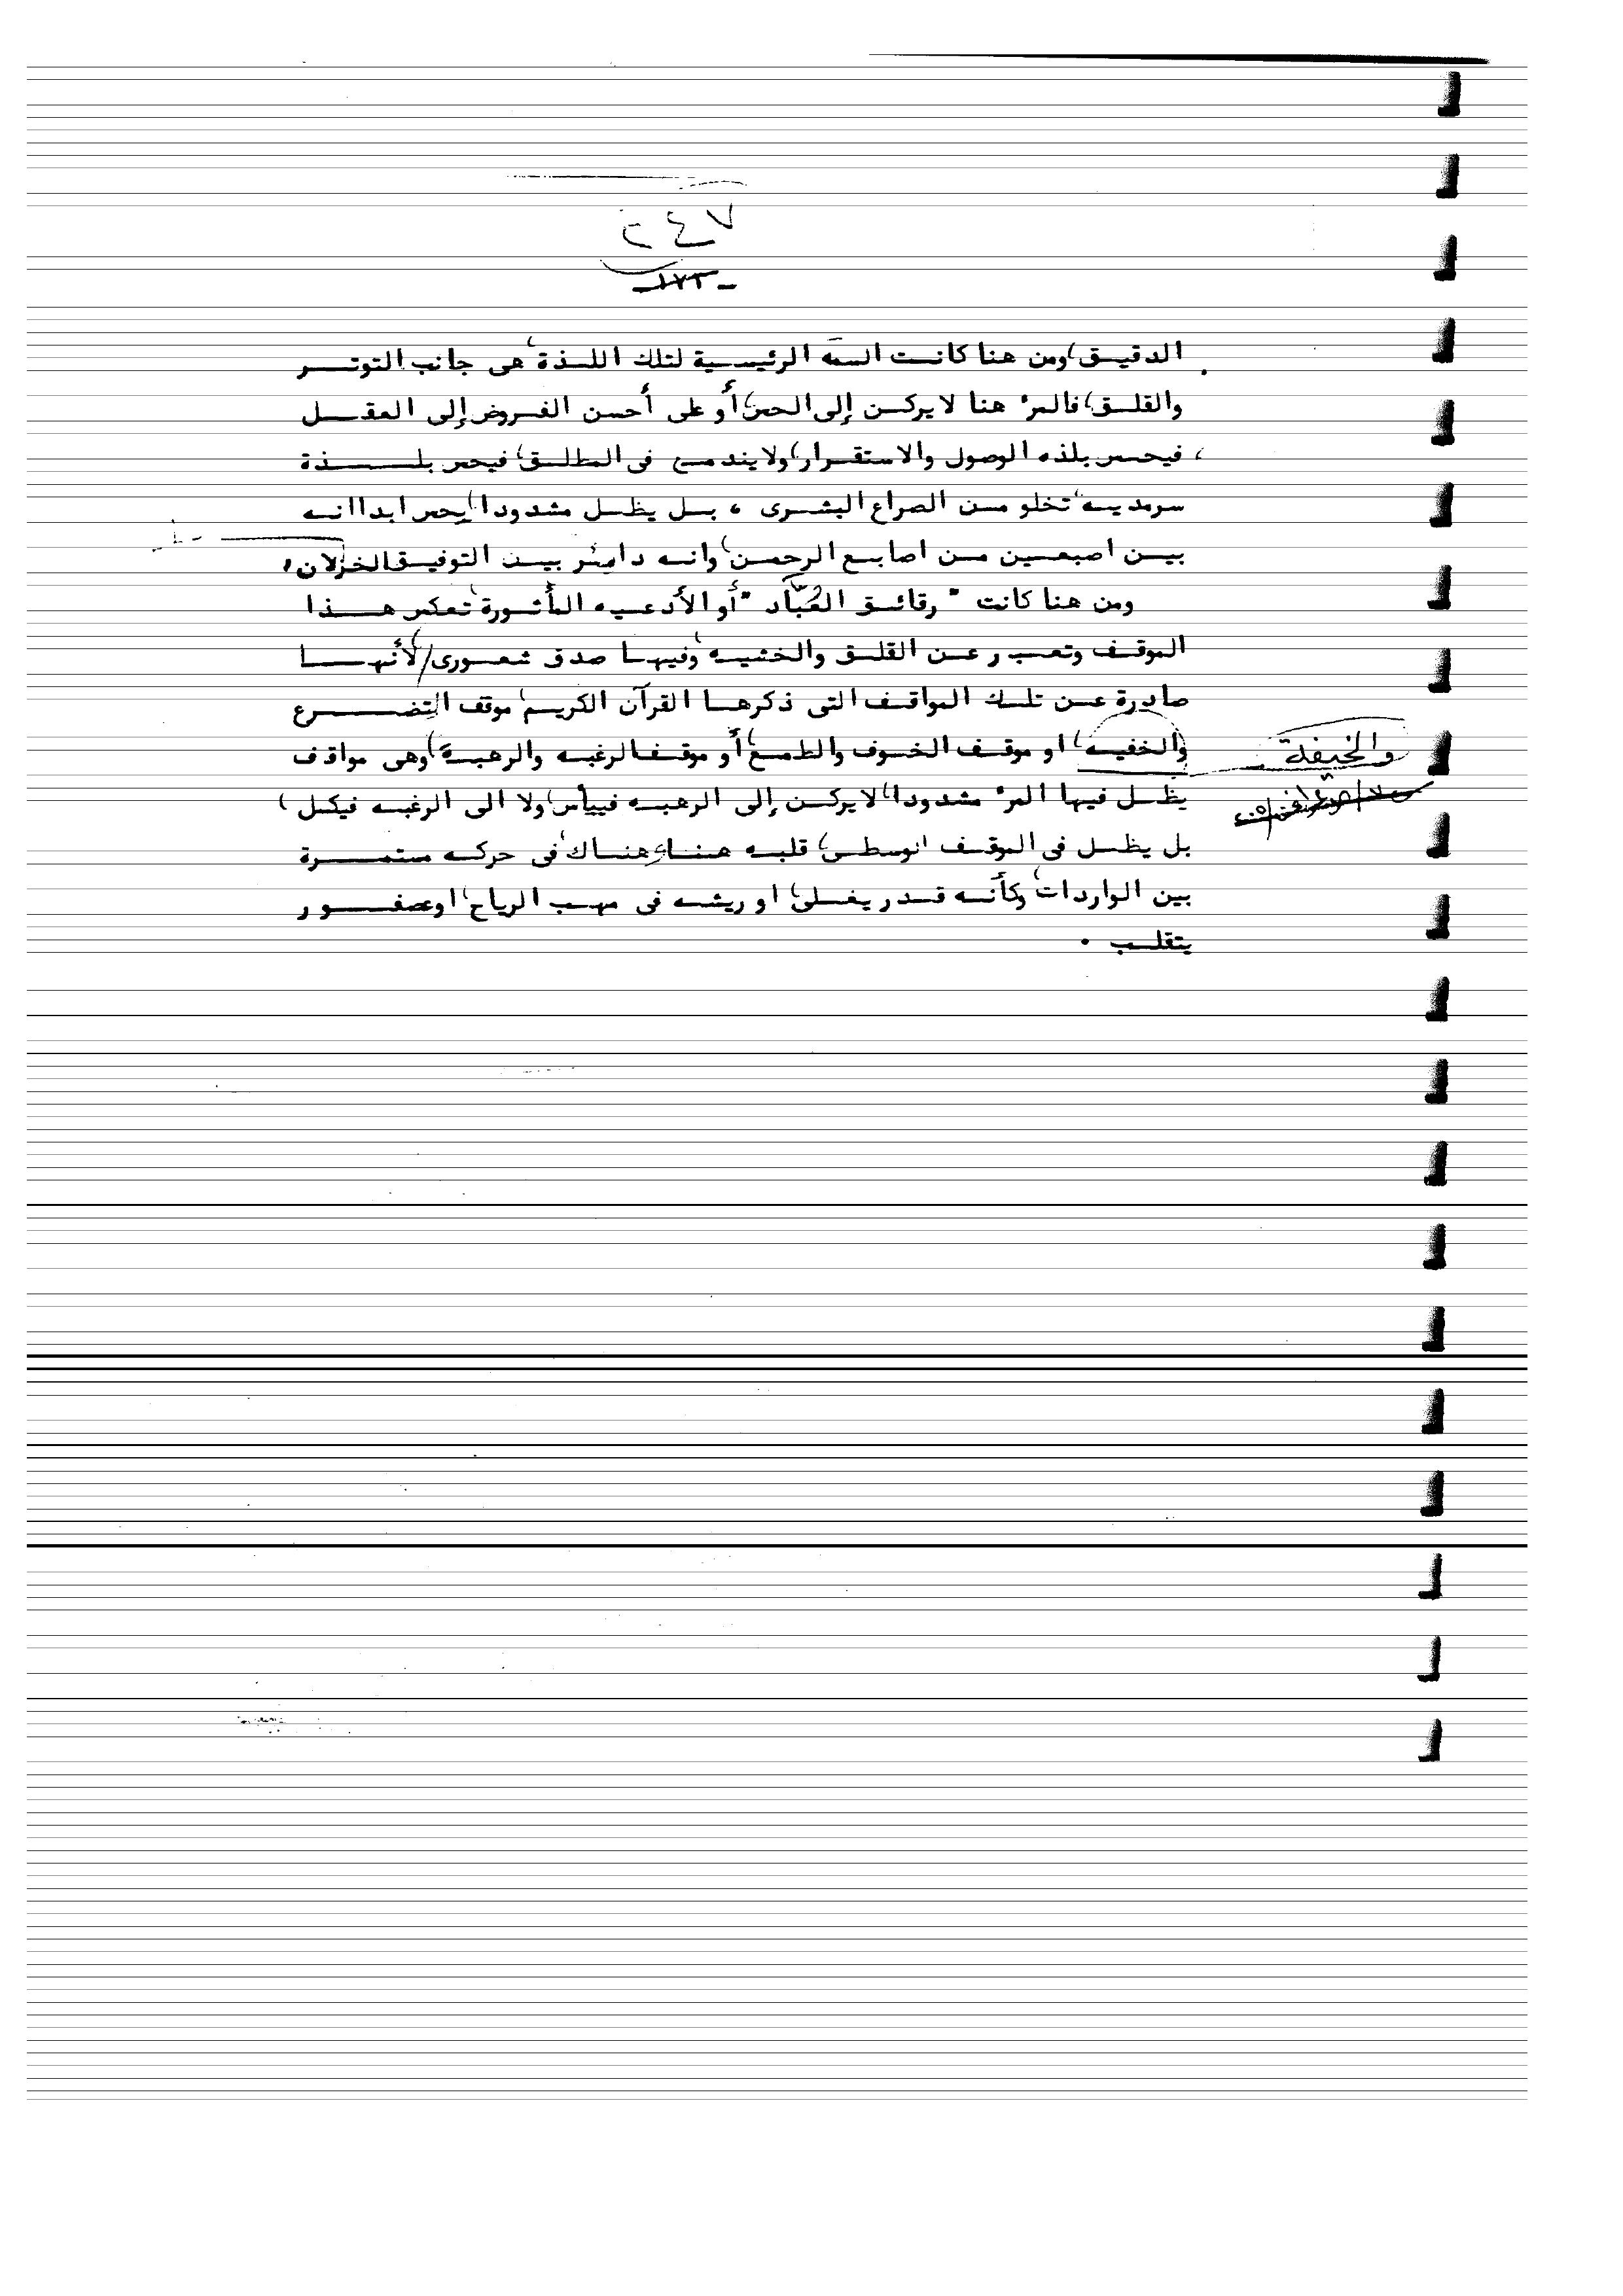 ٢٤٧
-١٧٣-
الدقيق، ومن هنا كانت السمه الرئيسية لتلك اللذة، هى جانب التوتر
والقلق، فالمرء هنا لا يركن إلى الحس، أو على أحسن الفروض إلى العقل
، فيحس بلذه الوصول والاستقرار، ولا يندمج فى المطلق، فيحس بلذة
سرمديه، تخلو من الصراع البشرى ، بل يظل مشدودا، يحس ابدا انه
بين اصبعين من اصابع الرحمن، وانه دائر بين التوفيق الخزلان،
ومن هنا كانت " رقائق العُبَّاد " أو الأدعيه المأثورة، تعكس هذا
الموقف وتعبر عن القلق والخشيه، وفيها صدق شعورى، لأنها
صادرة عن تلك المواقف التى ذكرها القرآن الكريم، موقف التضرع
والخفيه، او موقف الخوف والطمع، أو موقف الرغبه والرهبة، وهى مواقف
والخيفة
يظل فيها المرء مشدودا، لا يركن إلى الرهبه فييأس، ولا الى الرغبه فيكل،
بل يظل فى الموقف الوسطى، قلبه هنا، هناك، فى حركه مستمرة
بين الواردات، وكأنه قدر يغلى، او ريشه فى مهب الرياح، او عصفور
يتقلب .